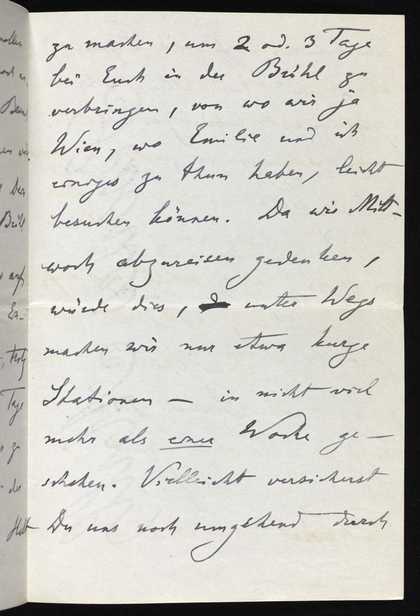 zu machen, um 2 od. 3 Tage
bei Euch in der Brühl zu
verbringen, von wo wir ja
Wien, wo Emilie und ich
einiges zu thun haben, leicht
besuchen können. Da wir Mitt-
woch abzureisen gedenken,
würde dies, unter Wegs
machen wir nur etwa kurze
Stationen — in nicht viel
mehr als einer Woche ge-
schehen. Vielleicht versicherst
Du uns noch umgehend durch